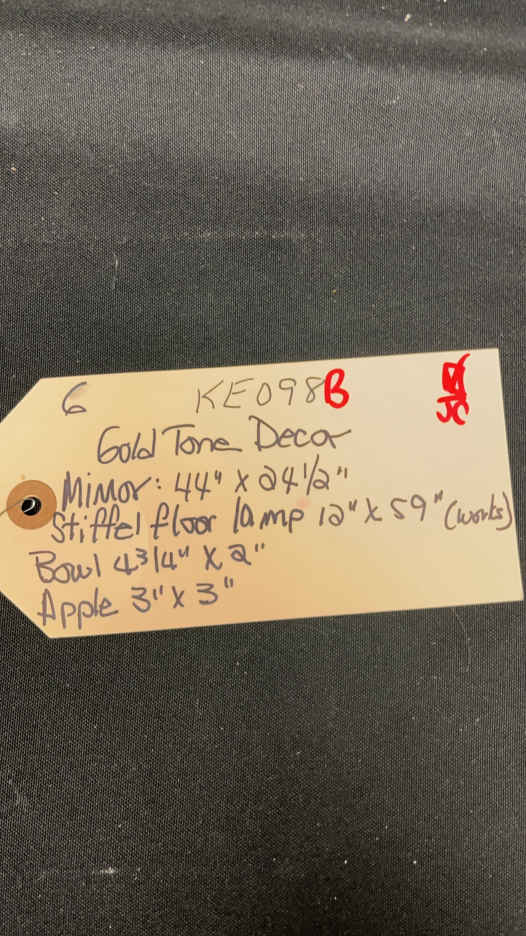 6 KE098B
JC
Gold Tone Decor
Mirror: 44" X 24 1/2"
Stiffel floor lamp 12" X 59" (works)
Bowl 4 3/4" X 2"
Apple 3" X 3"